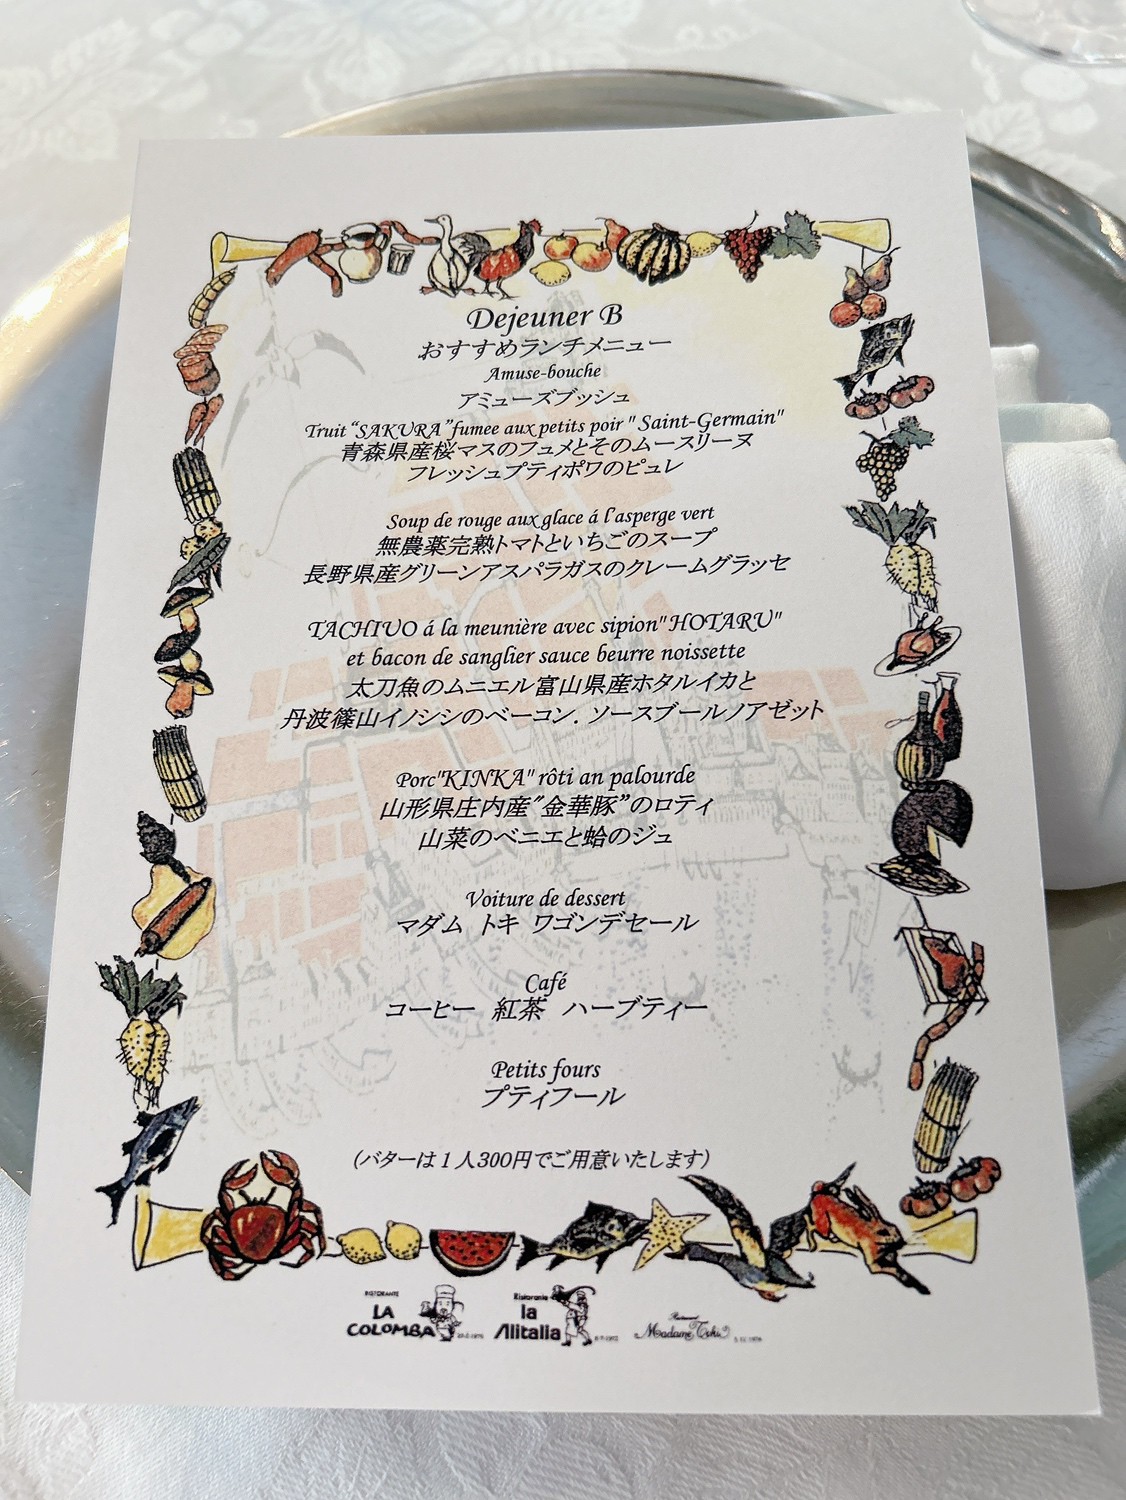 Dejeuner B
おすすめランチメニュー
Amuse-bouche
アミューズブッシュ
Truit “SAKURA”fumee aux petits poir " Saint-Germain"
青森県産桜マスのフュメとそのムースリーヌ
フレッシュプティポワのピュレ
Soup de rouge aux glace á l'asperge vert
無農薬完熟トマトといちごのスープ
長野県産グリーンアスパラガスのクレームグラッセ
TACHIUO á la meunière avec sipion" HOTARU"
et bacon de sanglier sauce beurre noissette
太刀魚のムニエル富山県産ホタルイカと
丹波篠山イノシシのベーコン. ソースブールノアゼット
Porc"KINKA" rôti an palourde
山形県庄内産"金華豚”のロティ
山菜のベニエと蛤のジュ
Voiture de dessert
マダム トキ ワゴンデセール
Café
コーヒー 紅茶 ハーブティー
Petits fours
プティフール
（バターは１人300円でご用意いたします）
RISTORANTE
LA
COLOMBA
Ristorante
la
Alitalia
Restaurant
Madame Toki